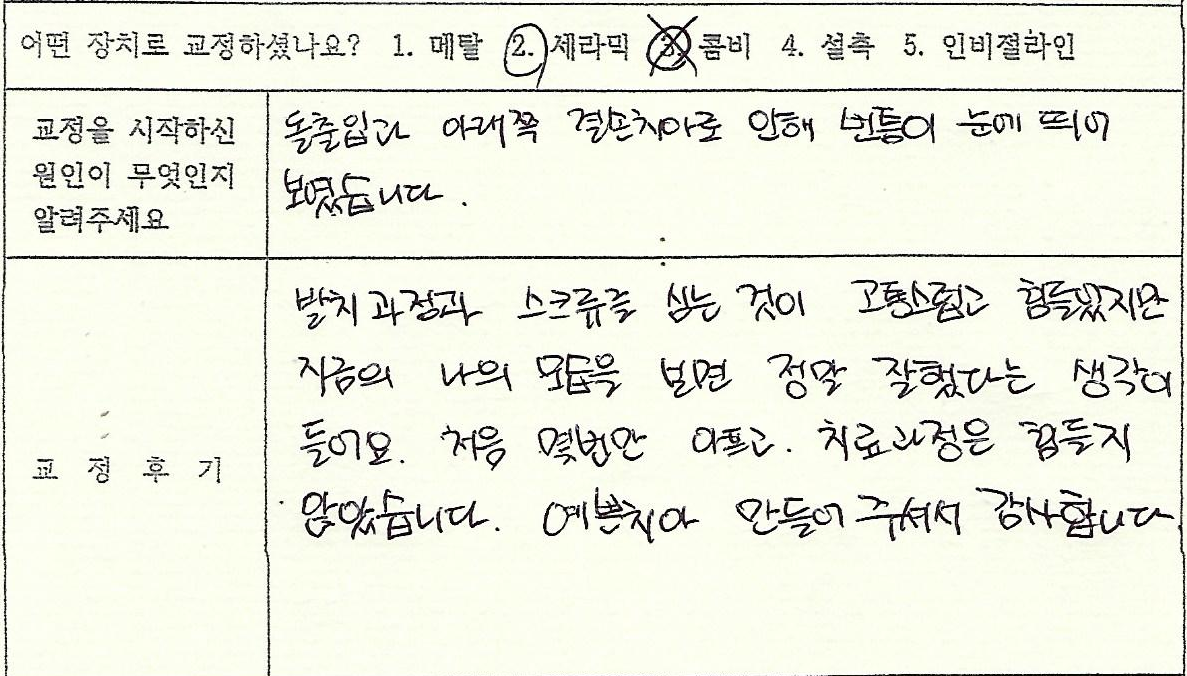 어떤 장치로 교정하셨나요? 1. 메탈 2. 세라믹 3. 콤비 4. 설측 5. 인비절라인
교정을 시작하신
원인이 무엇인지
알려주세요
돌출입과 아래쪽 결손치아로 인해 빈틈이 눈에 띄어
보였습니다.
교 정 후 기
발치과정과 스크류를 심는 것이 고통스럽고 힘들었지만
지금의 나의 모습을 보면 정말 잘했다는 생각이
들어요. 처음 몇번만 아프고. 치료과정은 힘들지
않았습니다. 예쁜치아 만들어 주셔서 감사합니다.